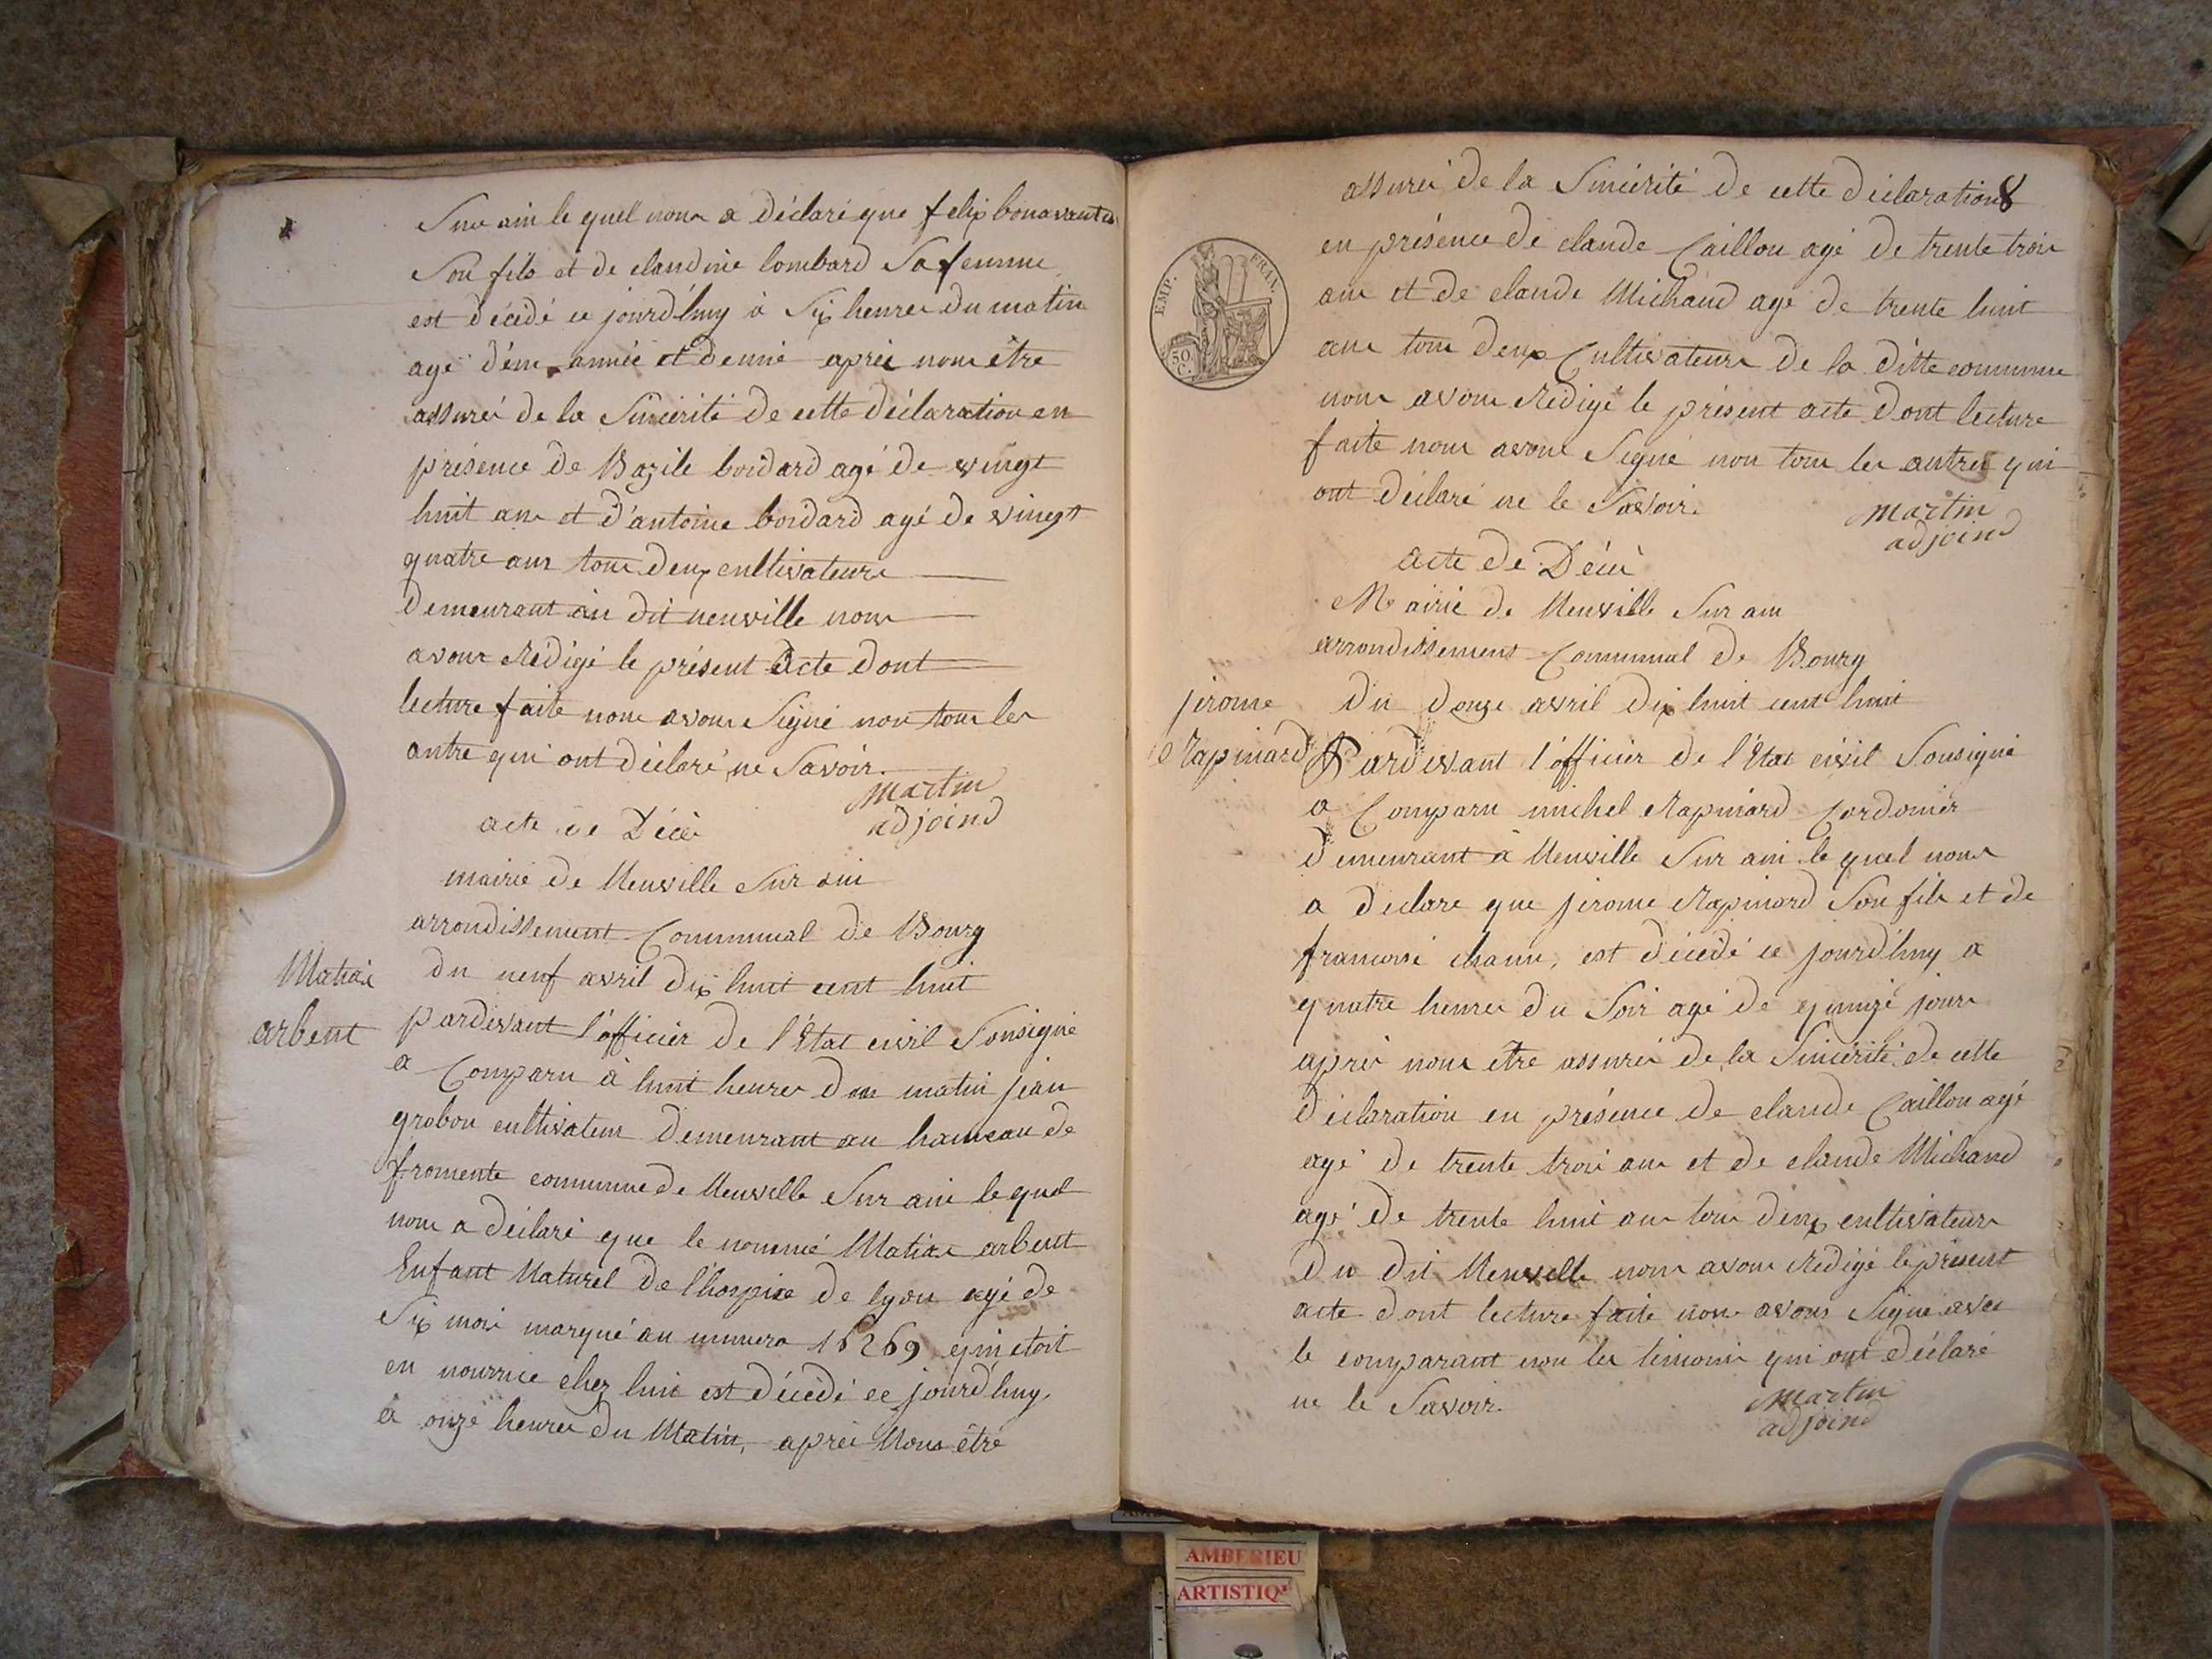 Sur ain le quel nous a déclaré que felix bonavanture
Son fils et de claudine lombard Sa femme
est décédé ce jourd'huy à Six heures du matin
agé d'une année et demie après nous être
assurés de la Sincérité de cette déclaration en
présence de Bazile boidard agé de vingt
huit ans et d'antoine boidard agé de vingt
quatre ans tous deux cultivateurs
demeurant au dit neuville nous
avons Rédigé le présent acte dont
lecture faite nous avons Signé non tous les
autre qui ont déclaré ne Savoir.
Martin
adjoind
acte de Décès
mairie de Neuville Sur ain
arrondissement Communal de Bourg
Matias
arbent
du neuf avril dix huit cent huit
pardevant l'officier de l'Etat civil Sousigné
a Comparu à huit heures dou matin jean
grobon cultivateur demeurant au hameau de
fromente commune de Neuville Sur ain le quel
nous a déclaré que le nommé Matias arbent
Enfant Naturel de l'hospice de lyon agé de
Six mois marqué au numero 16269 qui etoit
en nourrice chez lui est décédé ce jourd'huy
à onze heures du Matin, après Nous être
8
assurés de la Sincérité de cette déclaration
en présence de claude Caillou agé de trente trois
ans et de claude Michaud agé de trente huit
ans tous deux Cultivateurs de la ditte commune
nous avons Rédigé le présent acte dont lecture
faite nous avons Signé non tous les autres qui
ont déclaré ne le Savoir.
Martin
adjoind
EMP. FRAN.
50 C.
acte de Décès
Mairie de Neuville Sur ain
arrondissement Communal de Bourg
jerome
Rapinard
du douze avril dix huit cent huit
Pardevant l'officier de l'Etat civil Sousigné
a Comparu michel Rapinard Cordonier
demeurant à Neuville Sur ain le quel nous
a declare que jerome Rapinard Son fils et de
est décédé ce jourd'huy a
quatre heures du Soir agé de quinze jours
après nous être assurés de la Sincérité de cette
déclaration en présence de claude Caillou agé
agé de trente trois ans et de claude Michaud
agé de trente huit ans tous deux cultivateurs
du dit Neuville nous avons Rédigé le présent
acte dont lecture faite nous avons Signé avec
le comparant non les temoins qui ont déclaré
ne le Savoir.
Martin
adjoind
AMBERIEU
ARTISTIQ